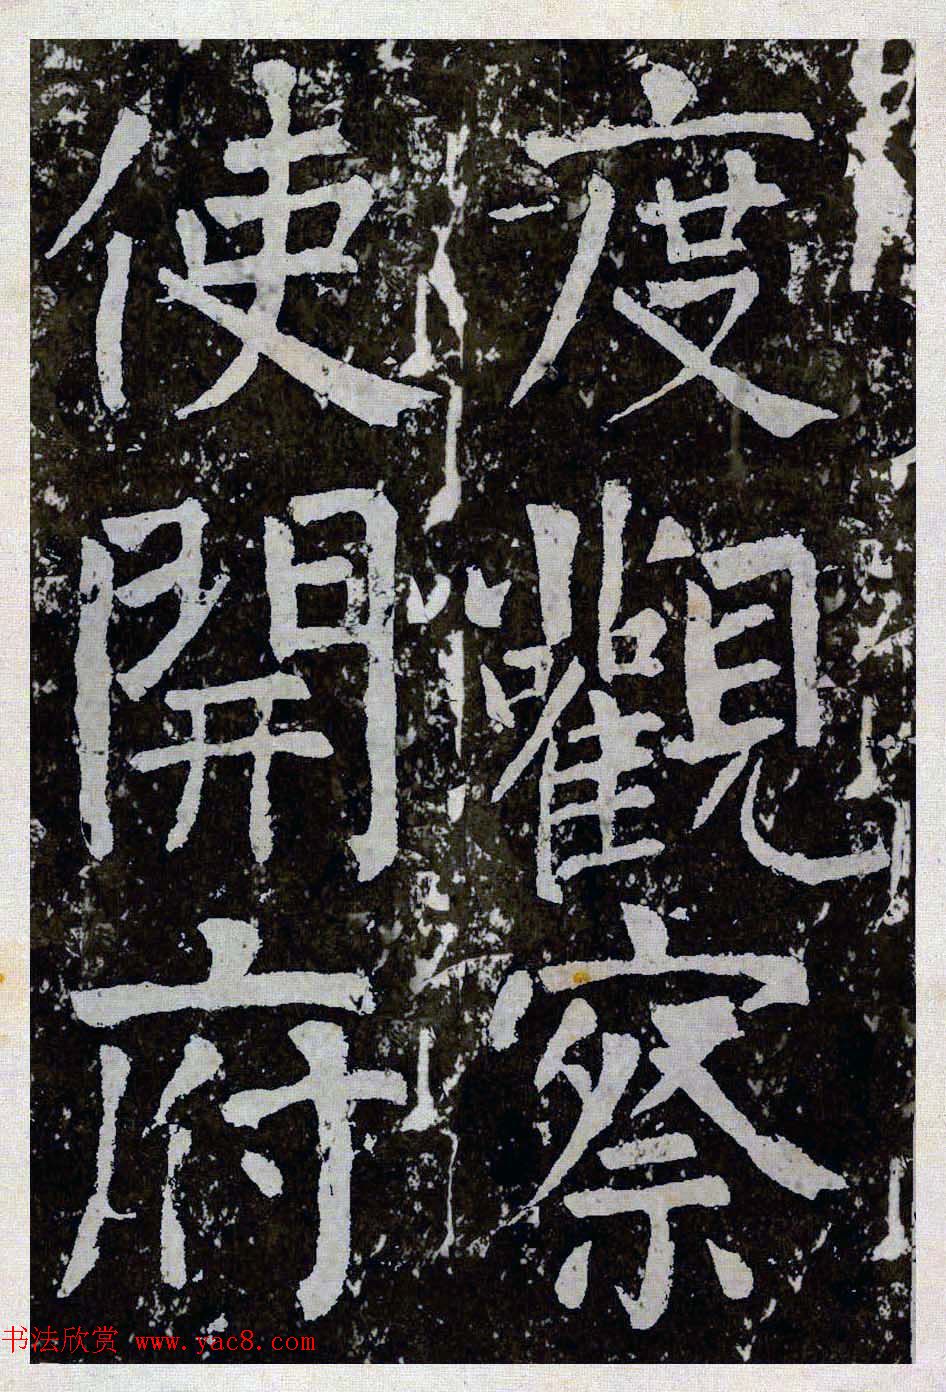 度觀察
使開府
书法欣赏 www.yac8.com